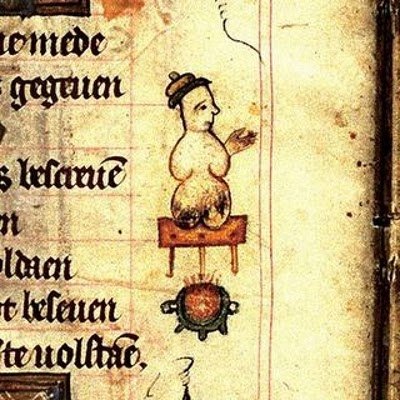 mede
gegeuen
s bescreuē
en
oldaen
t beseuen
ste uolstaē.